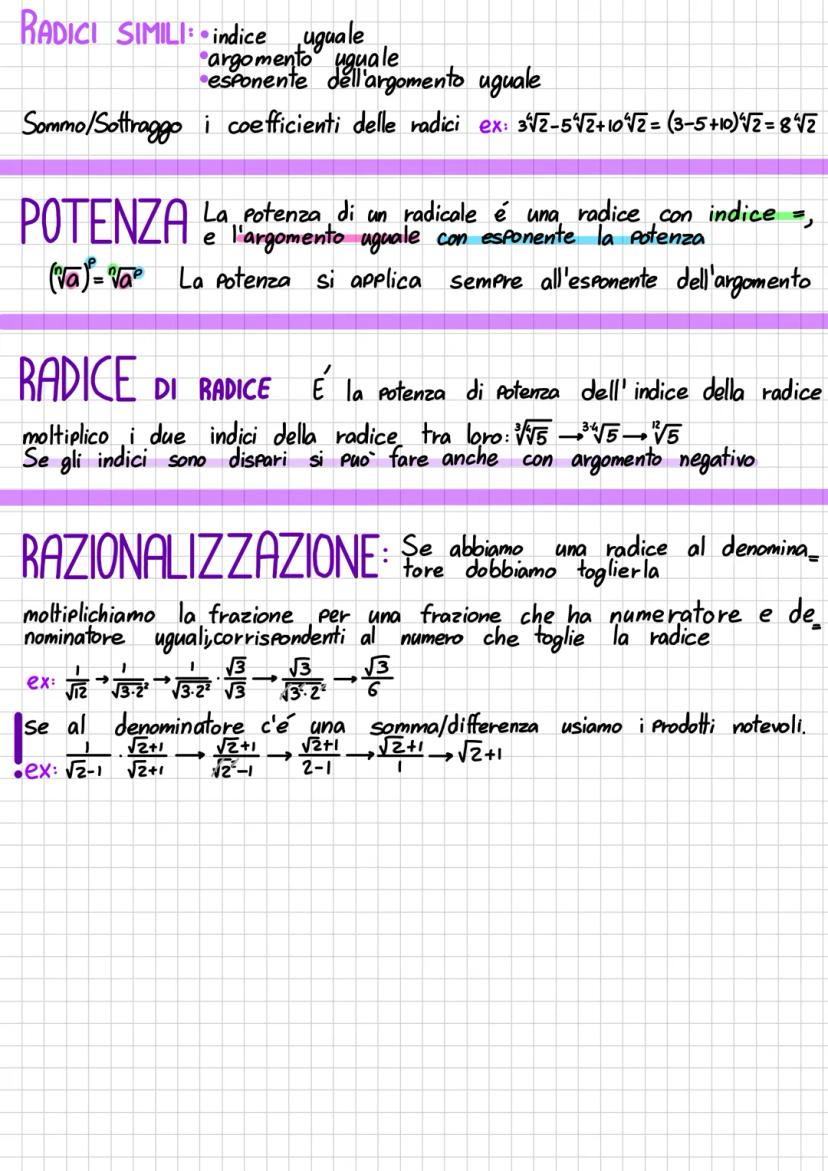 RADICI SIMILI: • indice uguale
• argomento uguale
• esponente dell'argomento uguale
Sommo/Sottraggo i coefficienti delle radici ex: 3∜2-5∜2+10∜2 = (3-5+10)∜2 = 8∜2
POTENZA La potenza di un radicale é una radice con indice =,
e l'argomento uguale con esponente la potenza
(ⁿ√a)ᵖ = ⁿ√aᵖ La potenza si applica sempre all'esponente dell'argomento
RADICE DI RADICE É la potenza di potenza dell'indice della radice
moltiplico i due indici della radice tra loro: ³√⁴√5 → ³·⁴√5 → ¹²√5
Se gli indici sono dispari si puo` fare anche con argomento negativo
RAZIONALIZZAZIONE: Se abbiamo una radice al denomina=
tore dobbiamo toglierla
moltiplichiamo la frazione per una frazione che ha numeratore e de=
nominatore uguali, corrispondenti al numero che toglie la radice
ex: 1/√12 → 1/√3·2² → 1/√3·2² · √3/√3 → √3/√3²·2² → √3/6
! se al denominatore c'é una somma/differenza usiamo i prodotti notevoli.
• ex: 1/√2-1 · √2+1/√2+1 → √2+1/√2²-1 → √2+1/2-1 → √2+1/1 → √2+1